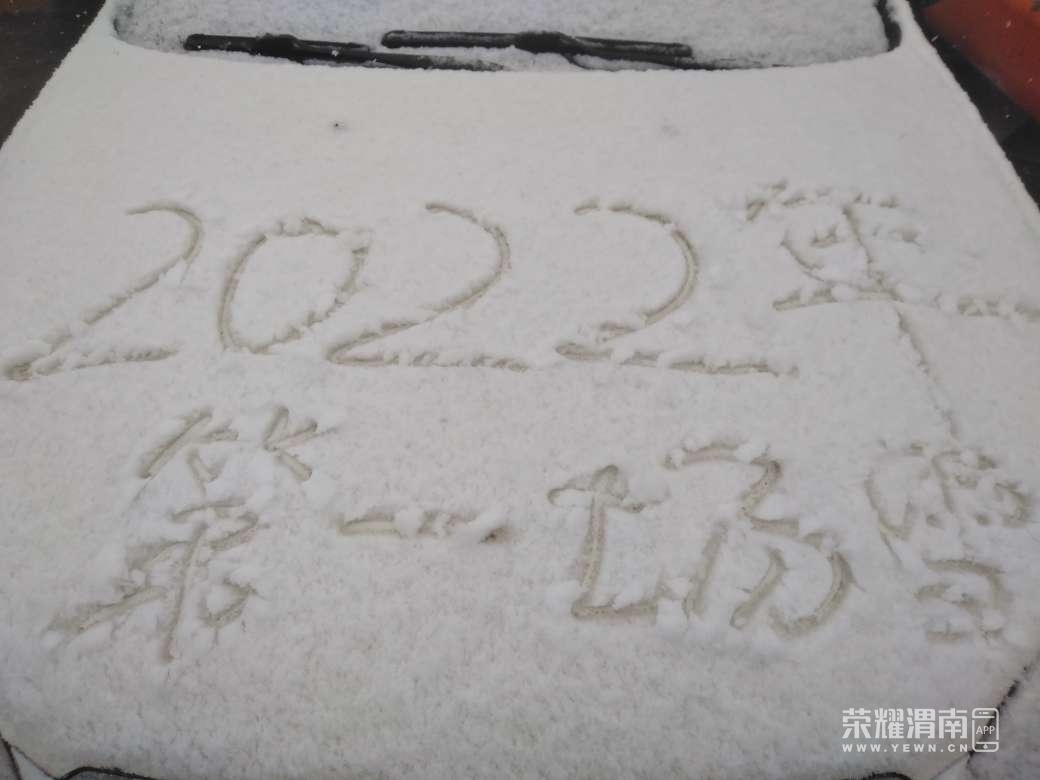 2022年
第一场雪
荣耀渭南 APP
WWW.YEWN.CN